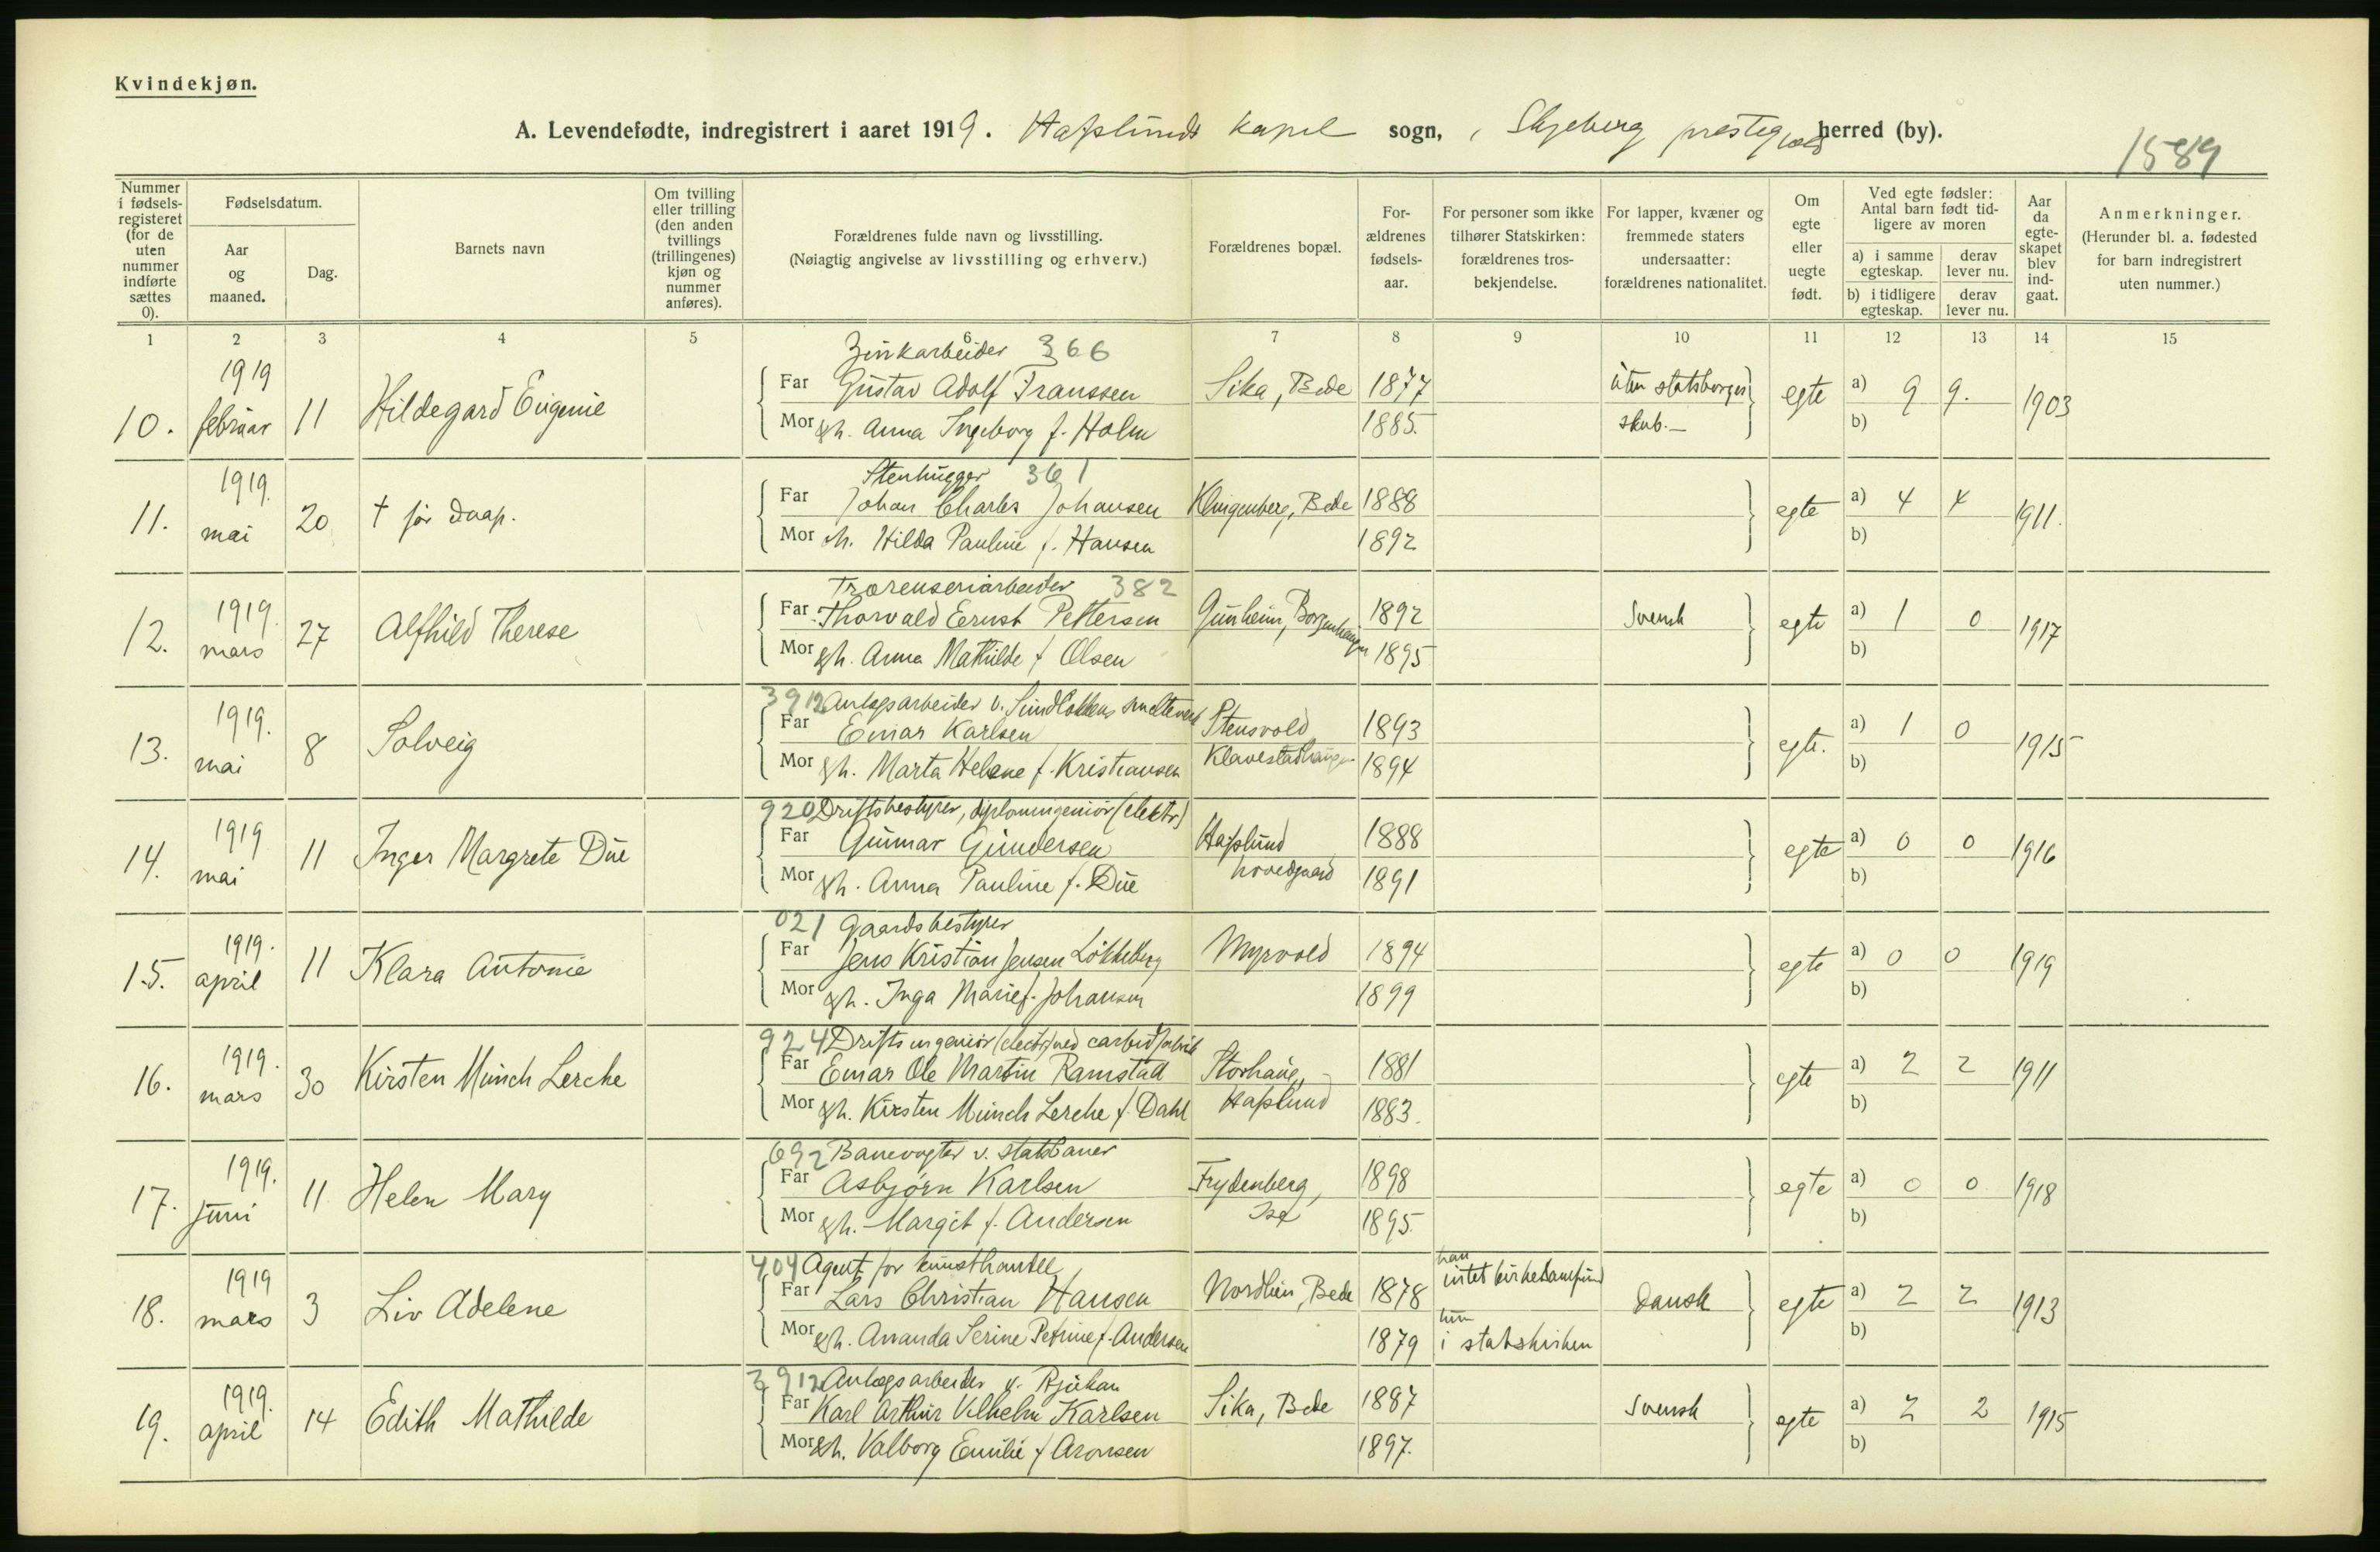 Kvindekjøn.
A. Levendefødte, indregistrert i aaret 1919. Hafslunds kapel sogn, Skjeberg prestegjæld herred (by).
1589
Nummer i fødsels-registeret (for de uten nummer indførte sættes 0).
Fødselsdatum.
Aar og maaned.
Dag.
Barnets navn
Om tvilling eller trilling (den anden tvillings (trillingenes) kjøn og nummer anføres).
Forældrenes fulde navn og livsstilling.
(Nøiagtig angivelse av livsstilling og erhverv.)
Forældrenes bopæl.
For-ældrenes fødsels-aar.
For personer som ikke tilhører Statskirken: forældrenes tros-bekjendelse.
For lapper, kvæner og fremmede staters undersaatter: forældrenes nationalitet.
Om egte eller uegte født.
Ved egte fødsler: Antal barn født tid-ligere av moren
a) i samme egteskap.
derav lever nu.
b) i tidligere egteskap.
derav lever nu.
Aar da egte-skapet blev ind-gaat.
Anmerkninger.
(Herunder bl. a. fødested for barn indregistrert uten nummer.)
1 2 3 4 5 6 7 8 9 10 11 12 13 14 15
Zinkarbeider 366
10. 1919 februar 11 Hildegard Eugenie
Far Gustav Adolf Franssen Sika, Bede 1877 uten statsborger egte a) 9 9. 1903
Mor h. Anna Ingeborg f. Holm 1885. skab.— b)
Stenhugger 361
11. 1919. mai 20 † før daap.
Far Johan Charles Johansen Klingenberg, Bede 1888 egte a) 4 4 1911.
Mor h. Hilda Pauline f. Hansen 1892 b)
Træsenseriarbeider 382
12. 1919. mars 27 Alfhild Therese
Far Thorvald Ernst Pettersen Gunheim, Borgenhaugen 1892 Svensk egte a) 1 0 1917
Mor h. Anna Mathilde f. Olsen 1895 b)
3912 Anlægsarbeider v. Sundløkkens smelteverk
13. 1919. mai 8 Solveig
Far Einar Karlsen Stensvold 1893 egte. a) 1 0 1915
Mor h. Marta Helene f. Kristiansen Klavestadhaugen 1894 b)
920 Driftsbestyrer, diplomingeniør (elektr)
14. 1919 mai 11 Inger Margrete Due
Far Gunnar Gundersen Hafslund 1888 egte a) 0 0 1916
Mor h. Anna Pauline f. Due hovedgaard 1891 b)
021 Gaardsbestyrer
15. 1919. april 11 Klara Antonie
Far Jens Kristian Jensen Løkkeberg Myrvold 1894 egte a) 0 0 1919
Mor h. Inga Marie f. Johansen 1899 b)
924 Driftsingeniør (elektr) ved carbidfabrik
16. 1919. mars 30 Kirsten Munch Lerche
Far Einar Ole Martin Ramstad Storhaug, 1881 egte a) 2 2 1911
Mor h. Kirsten Munch Lerche f. Dahl Hafslund 1883. b)
692 Banevogter v. statsbaner
17. 1919. juni 11 Helen Mary
Far Asbjørn Karlsen Frydenberg, 1898 egte a) 0 0 1918
Mor h. Margit f. Andersen Ise 1895. b)
404 Agent for kunsthandel
18. 1919 mars 3 Liv Adelene
Far Lars Christian Hansen Nordheim, Bede 1878 han intet kirkesamfund Dansk egte a) 2 2 1913
Mor h. Amanda Serine Petrine f. Andersen 1879 hun i statskirken b)
3912 Anlægsarbeider v. Rjukan
19. 1919. april 14 Edith Mathilde
Far Karl Arthur Vilhelm Karlsen Sika, Bede 1887 Svensk egte a) 2 2 1915
Mor h. Valborg Emilie f Aronsen 1897. b)